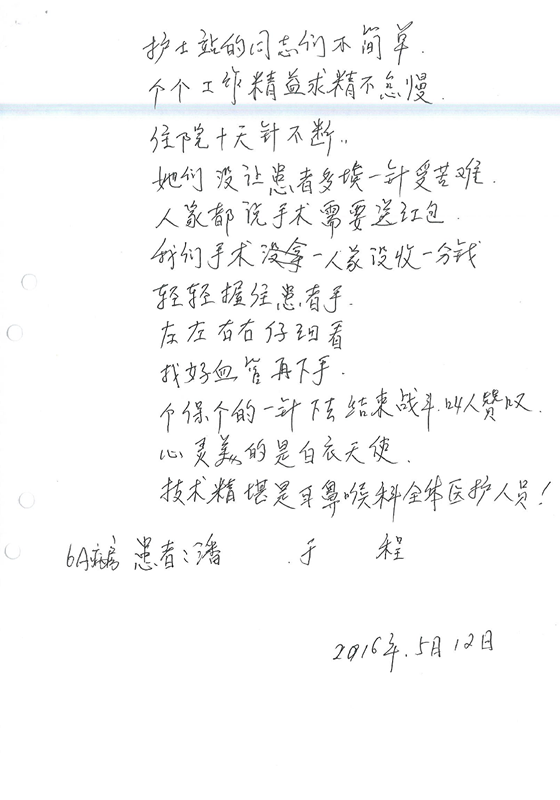 护士站的同志们不简单.
个个工作精益求精不怠慢.
住院十天针不断..
她们没让患者多埃一针受苦难.
人家都说手术需要送红包.
我们手术没拿一人家没收一分钱
轻轻握住患者手.
左左右右仔细看
找好血管再下手.
个保个的一针下去结束战斗.叫人赞叹.
心灵美的是白衣天使.
技术精堪是耳鼻喉科全体医护人员!
6A病房 患者:潘 . 于 程
2016年.5月12日